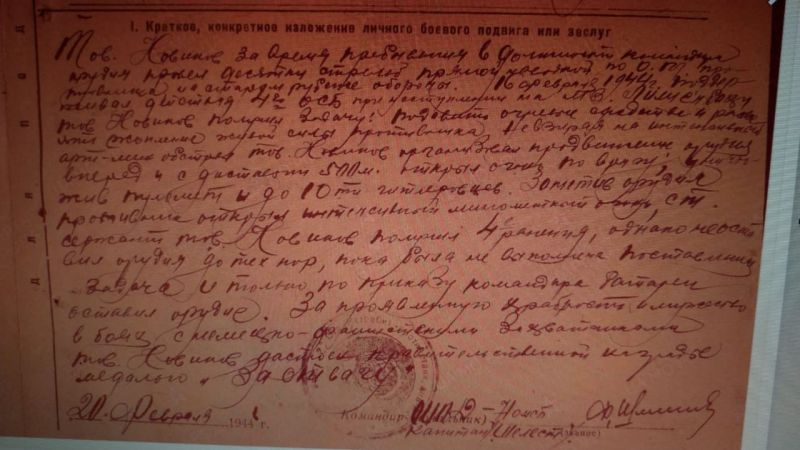 I. Краткое, конкретное изложение личного боевого подвига или заслуг
Тов. Новиков за время пребывания в должности командира
орудия провел десятки стрельб прямой наводкой по О.Т. про-
тивника из стардом рубеже обороны. 16 февраля 1944г. поддер
живая действия 4го ОСБ при наступлении на
тов. Новиков получил задачу: подавить огневые средства и
скопление живой силы противника. Невзирая на интенсивный
арт-мин обстрел тов. Новиков организовал продвижение орудия
вперед и с дистанции 500м. открыл огонь по врагу, уничто-
жив пулемет и до 10ти гитлеровцев. Заметив орудие
противник открыл интенсивный минометный огонь, ст.
сержант тов. Новиков получил 4 ранения, однако не оста
вил орудия до тех пор, пока была не выполнена поставленная
задача и только по приказу командира батареи
оставил орудие. За проявленную храбрость и мужество
в боях с немецко-фашистскими захватчиками
тов. Новиков достоин правительственной награды
медалью „За отвагу"
20. Февраля 1944 г.
Командир (начальник)
Капитан Шелест. (звание)